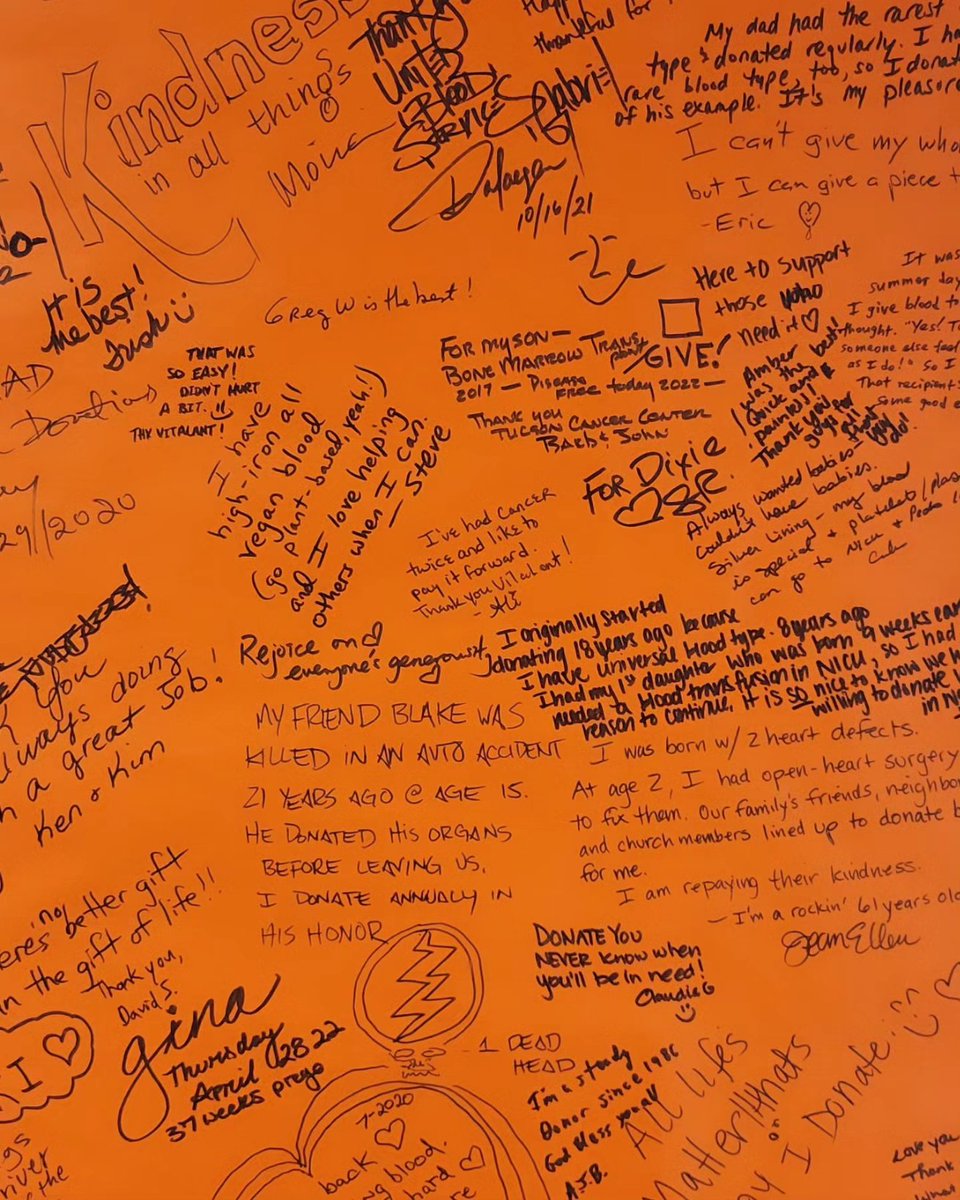 Kindness
in all things
It is
the best!
Trish
Thank you
United
Blood
Services
Gabriel
10/16/21
thankful for
My dad had the rarest
type & donated regularly. I ha
rare blood type, too, so I donat
of his example. It's my pleasure
I can't give my who
but I can give a piece t
-Eric
Greg W is the best!
Here to support
those who
need it
GIVE!
It was
summer day
I give blood to
thought. "Yes! To
someone else feel
as I do!" So I
That recipient
Some good
THAT WAS
SO EASY!
DIDN'T HURT
A BIT.
THX VITALANT!
FOR MY SON —
BONE MARROW TRANSPLANT
2017 — DISEASE
FREE TODAY 2022 —
THANK YOU
TUCSON CANCER CENTER
BARB & JOHN
Amber
was the best!
Quick and
painless!
Thank you
guys for
what
you
do!
Donations
29/2020
I have
high-iron all
vegan blood
(go plant-based, yeah!)
and I love helping
others when I can.
— Steve
FOR DIXIE
I've had cancer
twice and like to
pay it forward.
Thank you Vitalant!
Always wanted babies -
Couldn't have babies.
Silver lining - my blood
is special & platelets/plas
can go to NICU & Peds
Rejoice on
everyone's generousity
I originally started
donating 18 years ago because
I have universal blood type. 8 years ago
I had my 1st daughter who was born 9 weeks ear
needed a blood transfusion in NICU, so I had
reason to continue, it is so nice to know we h
willing to donate
in N
You
Always doing
a great
Job!
Ken & Kim
MY FRIEND BLAKE WAS
KILLED IN AN AUTO ACCIDENT
21 YEARS AGO @ AGE 15.
HE DONATED HIS ORGANS
BEFORE LEAVING US.
I DONATE ANNUALLY IN
HIS HONOR
I was born w/ 2 heart defects.
At age 2, I had open-heart surgery
to fix them. Our family's friends, neighbo
and church members lined up to donate b
for me.
I am repaying their kindness.
— I'm a rockin' 61 years old
Jean Ellen
no
ere's better gift
n the gift of life!!
Thank you,
David S.
DONATE YOU
NEVER know when
you'll be in need!
Claudia G
I
gina
Thursday
April 28 22
37 weeks prego
1 DEAD
HEAD
I'm a steady
Donor since 1986
God bless you all
A.J.B.
All lifes
Matter! thats
I Donate
7-2020
back
blood.
hard
Love you
Thank